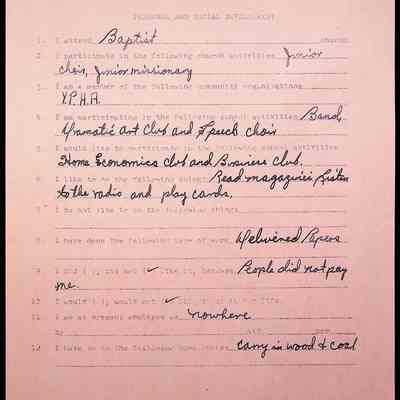 PERSONAL AND SOCIAL DEVELOPMENT
1. I attend Baptist church
2. I participate in the following church activities Junior
choir, Junior missionary
3. I am a member of the following community organizations
Y.P.H.A.
4. I am participating in the following school activities Band,
Dramatic Art Club and Speech choir
5. I would like to participate in the following school activities
Home Economics club and Business Club.
6. I like to do the following things Read magazines, listen
to the radio and play cards.
7. I do not like to do the following things
8. I have done the following type of work Delivered Papers
9. I did ( ), did not (✓ like it, because People did not pay
me.
10. I would ( ), would not (✓ like to do it for life.
11. I am at present employed as nowhere
by at per
12. I have to do the following home duties carry in wood & coal